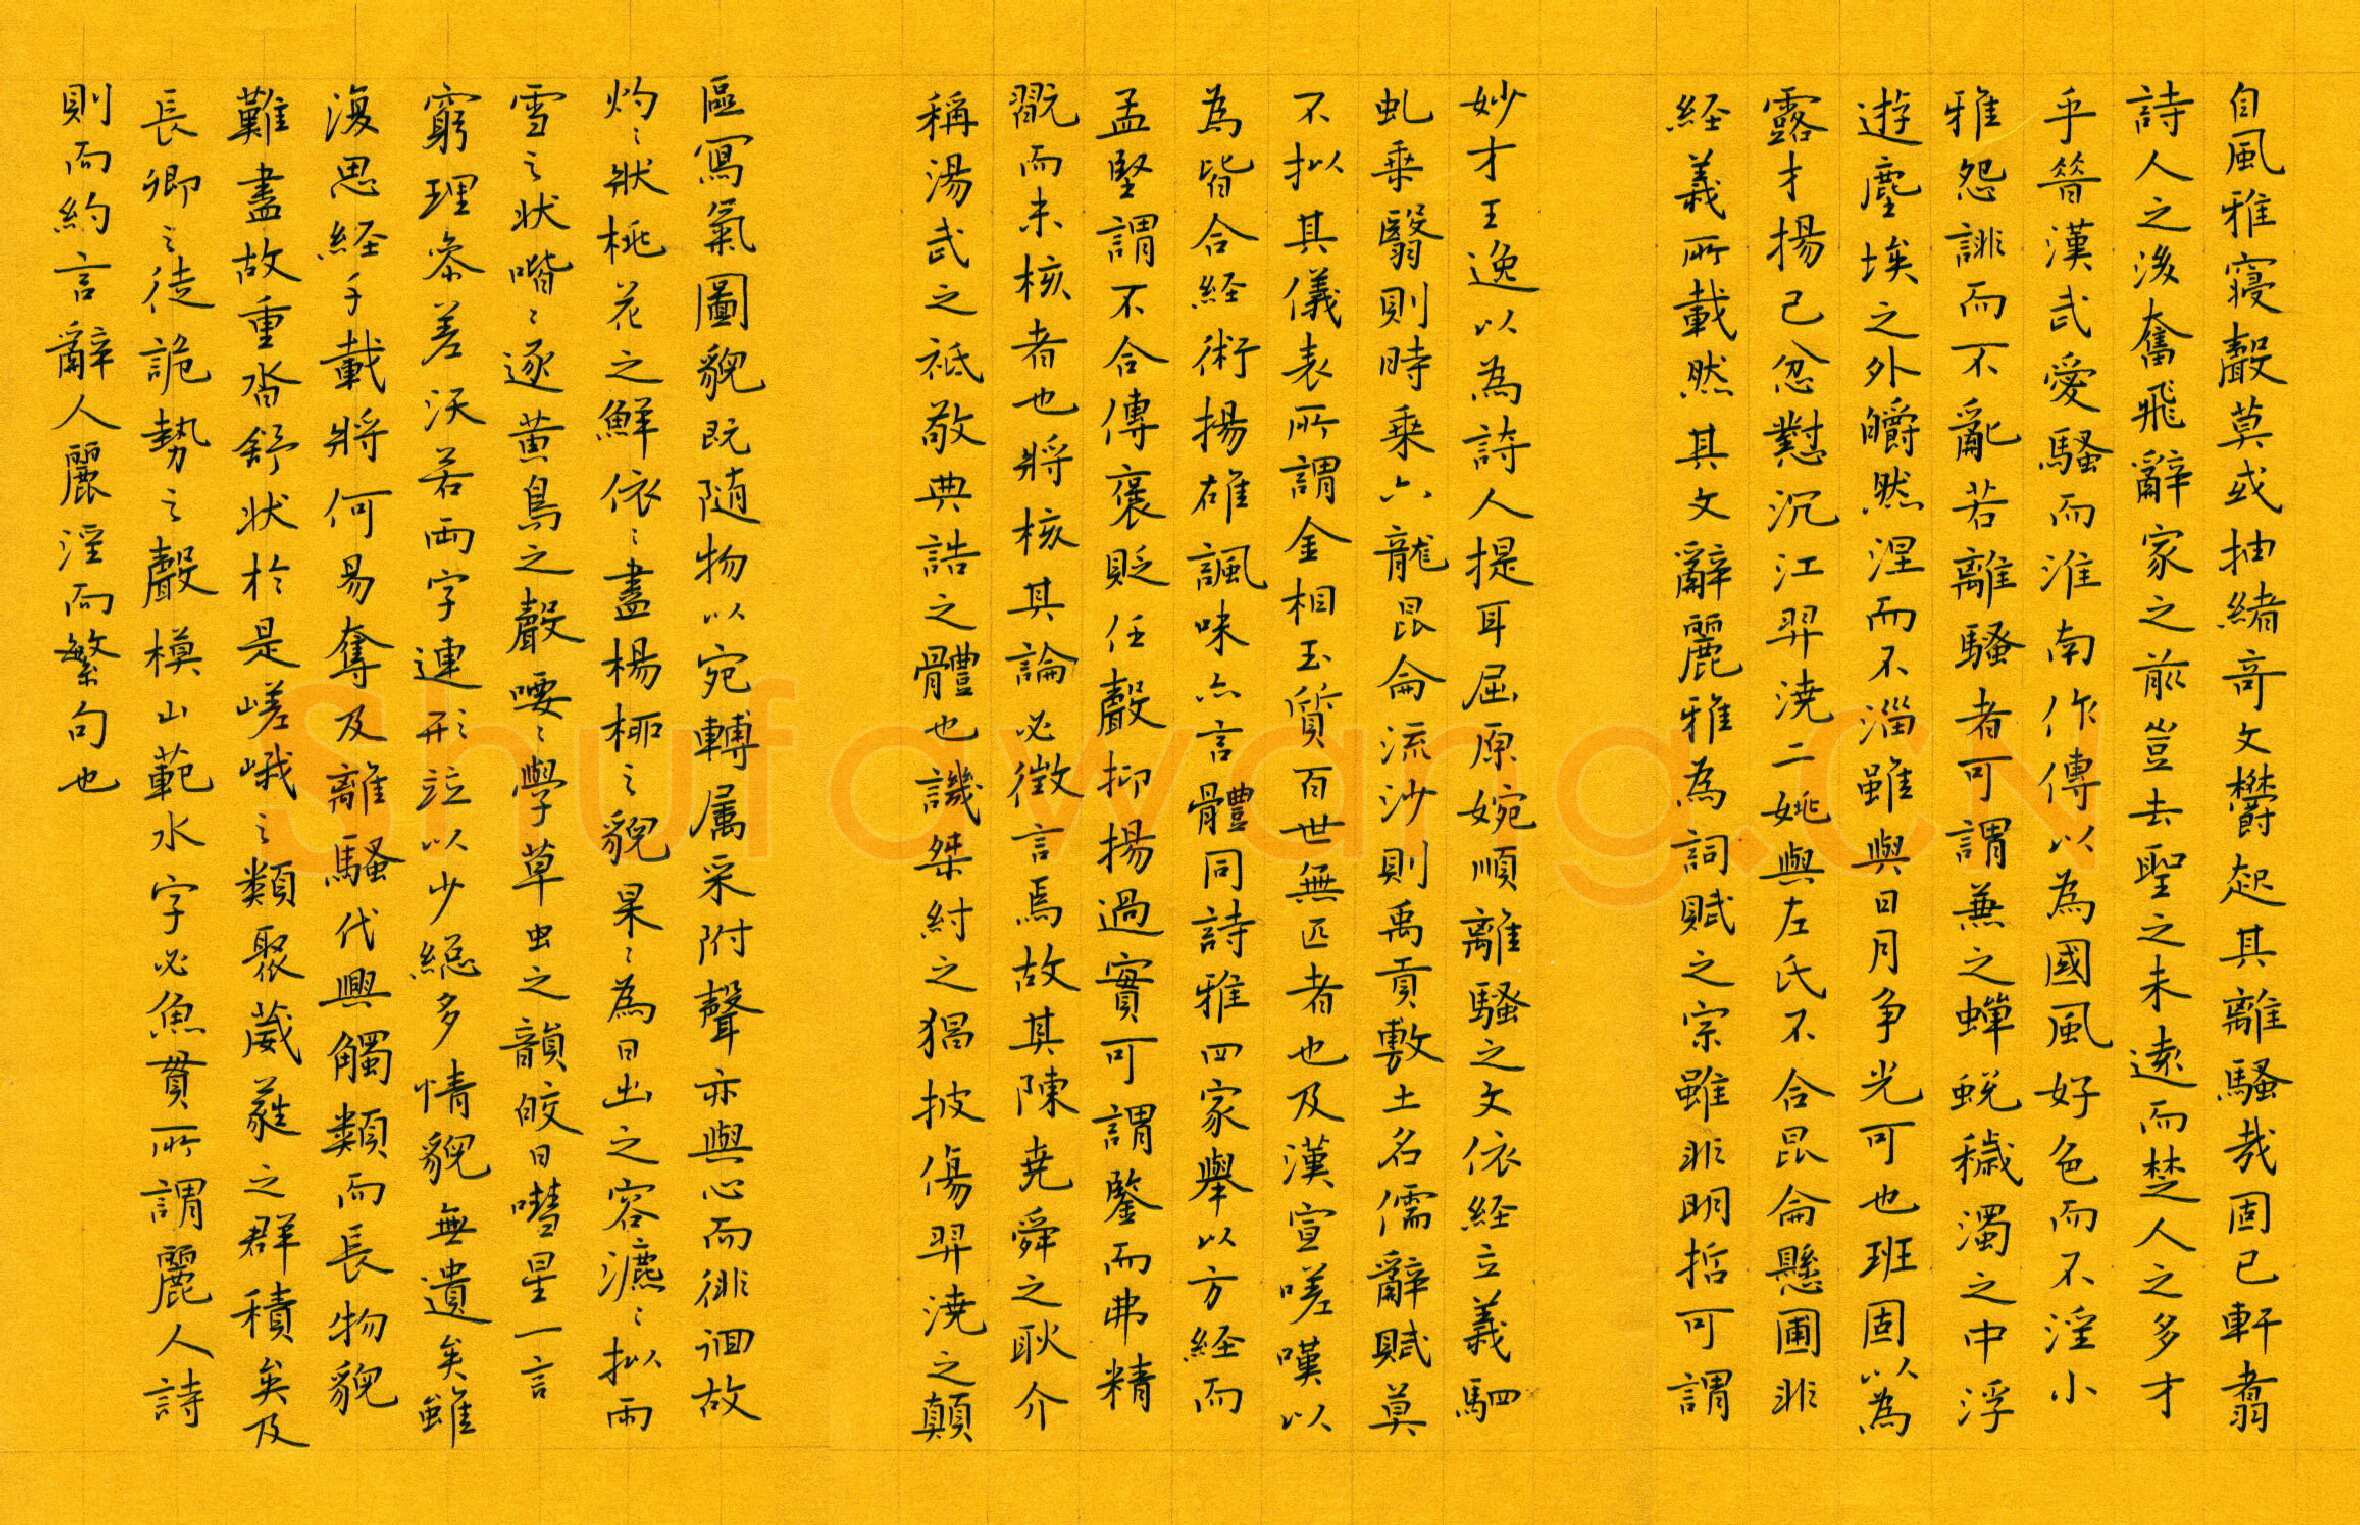 自風雅寢聲莫或抽緒奇文欝起其離騷哉固已軒翥
詩人之後奮飛辭家之前豈去聖之未遠而楚人之多才
乎昔漢武愛騷而淮南作傳以為國風好色而不淫小
雅怨誹而不亂若離騷者可謂兼之蟬蛻穢濁之中浮
遊塵埃之外皭然涅而不淄雖與日月争光可也班固以為
露才揚己忿懟沉江羿澆二姚與左氏不合昆侖懸圃非
経義所載然其文辭麗雅為詞賦之宗雖非明哲可謂
妙才王逸以為詩人提耳屈原婉順離騷之文依経立義駟
虬乘翳則時乘六龍昆侖流沙則禹貢敷土名儒辭賦莫
不拟其儀表所謂金相玉質百世無匹者也及漢宣嗟嘆以
為皆合経術揚雄諷味亦言體同詩雅四家舉以方経而
孟堅謂不合傳褒貶任聲抑揚過實可謂鑒而弗精
翫而未核者也將核其論必徵言焉故其陳堯舜之耿介
稱湯武之祗敬典誥之體也譏桀紂之猖披傷羿澆之顛
區寫氣圖貌既随物以宛轉属采附聲亦與心而徘徊故
灼〻狀桃花之鮮依〻盡楊柳之貌杲〻為日出之容瀌〻拟雨
雪之状喈〻逐黄鳥之聲喓〻學草虫之韻皎日嘒星一言
窮理參差沃若兩字連形竝以少総多情貌無遺矣雖
復思経千載將何易奪及離騷代興觸類而長物貌
難盡故重沓舒状於是嵯峨之類聚葳蕤之群積矣及
長卿之徒詭勢之聲模山範水字必魚貫所謂麗人詩
則而約言辭人麗淫而繁句也
Shufawang.CN